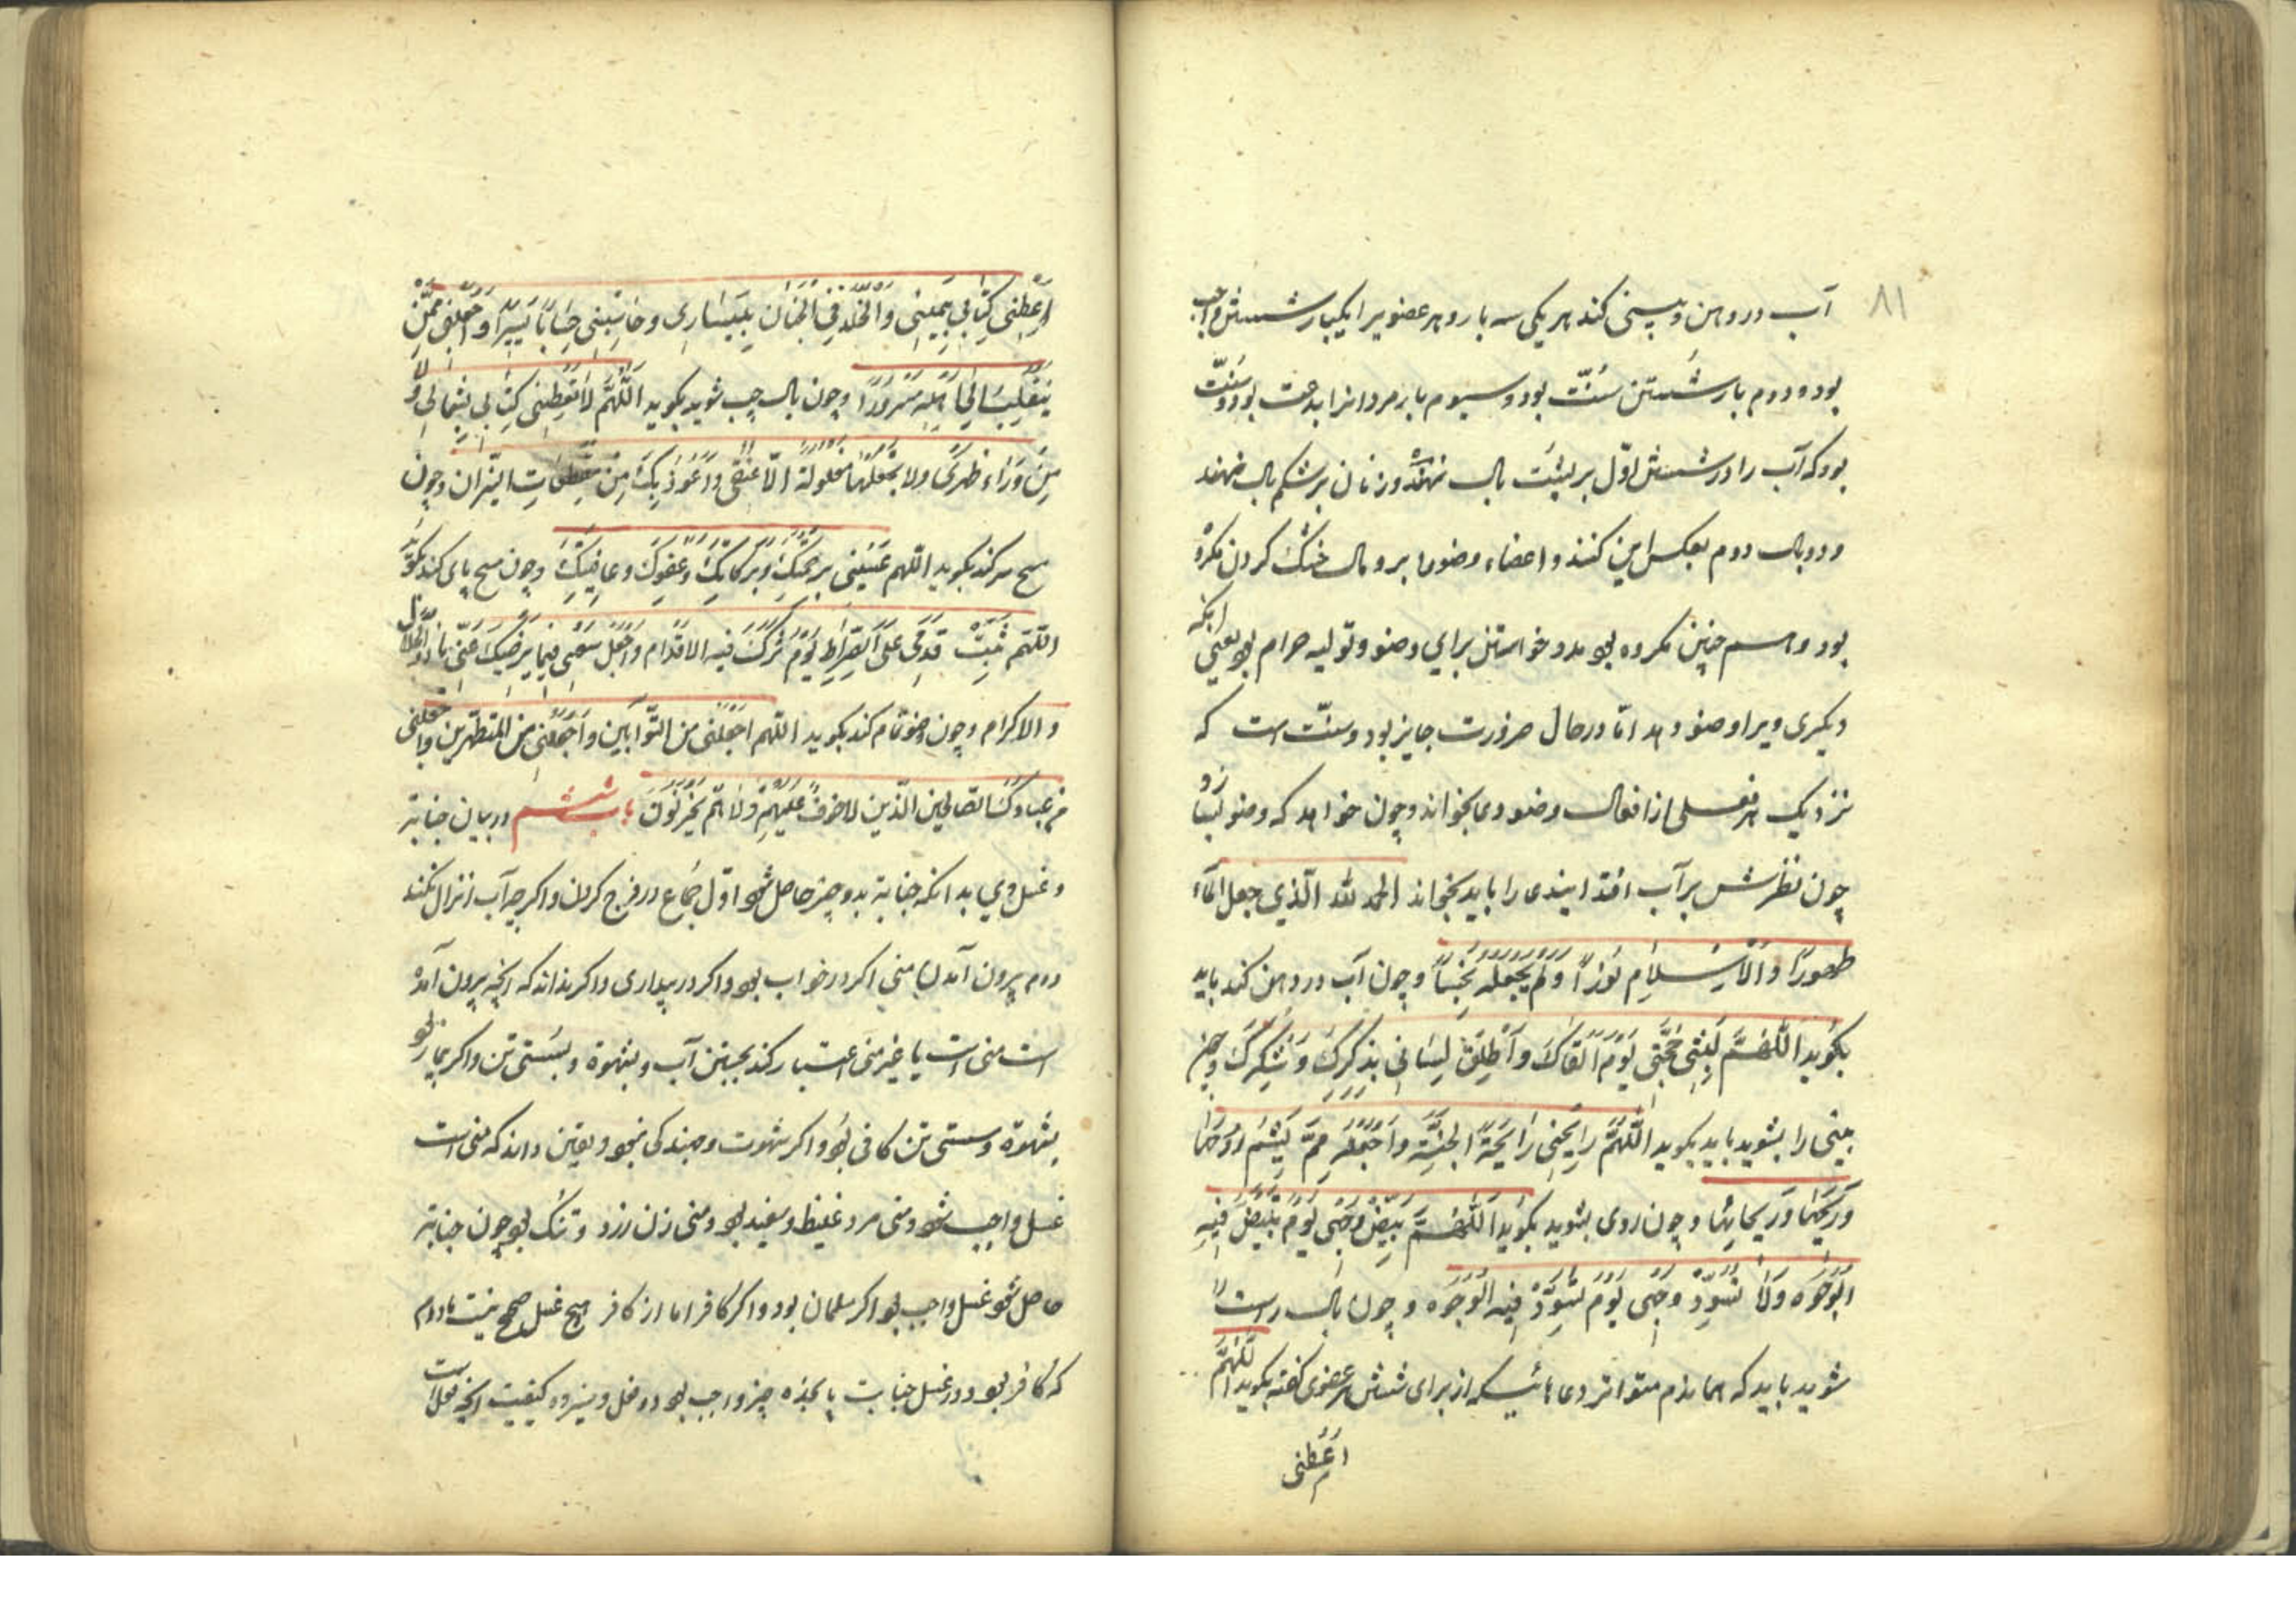 ٨١
آب در دهن و بینی کند هر یکی سه بار و هر عضویرا یکبار شستن واجب
بود و دوم بار شستن سُنّت بود و سیوم بار مر دانرا بدعت بود و سنّت
بود که آب را در شستن اوّل بر پشت بال نهند و زنان بر شکم بال نهند
و در بال دوم بعکس این کنند و اعضاء وضو را برومال خشک کردن مکروه
بود و همچنین مکروه بود مدد خواستن برای وضو و تولیه حرام بود یعنی آنکه
دیکری ویرا وضو دهد امّا در حال ضرورت جایز بود و سنّت است که
نزدیک هر فعلی از افعال وضو دعا بخواند و چون خواهد که وضو بسازد
چون نظرش بر آب افتد ایندعا را باید بخواند الحمد لله الّذی جعل الماء
طهورًا والاسلام نورًا ولم یجعله نجسًا و چون آب در دهن کند باید
بکوید اللّهمَّ لقنی حجّتی یَوْمَ القاکَ وَأَطلِقْ لِسَانی بذکرِکَ وَشکرِکَ و چون
بینی را بشوید باید بکوید اللّهُمَّ رایحنی رایحَةَ الجنّةِ واجعله ممّ یَشُمُّ روحها
وریحَها وَرَیحانها و چون روی بشوید بکوید اللّهُمَّ بَیِّض وَجهی یَومَ تبیَضُّ فیهِ
الوُجُوه ولا تُسَوِّد وجهی یَومَ تسوَدُّ فیه الوُجوه و چون بال راست را
شوید باید که همان دم متواتر دعائیکه از برای شستن هر عضوی کفته بکوید اللّهُمَّ
اعطنی
اَعْطِنی کِتابی بِیَمینی وَالخُلْدَ فی الْجِنان بِیَسَاری و حَاسِبْنی حِسَابًا یَسیرًا وَاجْعَلنی ممَّن
یَنقَلِبُ الی اَهلِهِ مَسرُورًا و چون بال چپ شوید بکوید اَللّهُمَّ لا تُعطِنی کِتابی بِشِمالی وَلا
مِن وَرَاء ظهری ولا تجعَلْها مغلولةً الا عنقی وَاَعُوذُ بِکَ مِنْ مقطعاتِ النیران و چون
مسح سر کند بکوید اللّهم غَشّنی برحمتک وبرکاتک وعَفوِکَ وعافِیَتِکَ و چون مسح پای کند بکوید
اللّهم ثبّت قدمی علَی الصِراطِ یَوْمَ تزلّ فیه الاقدام واجعل سَعیی فیما یُرضیکَ عنّی یا ذا الجلال
والاکرام و چون وضو تمام کند بکوید اللّهم اجعلنی من التوّابین واجعلنی من المتطهّرین واجعلنی
من عبادک الصالحین الّذین لا خوفٌ عَلَیهِمْ ولا هُم یَحزَنُونَ باب ششم در بیان جنابة
و غسل وی بدانکه جنابة بدو چیز حاصل شود اوّل جماع در فرج کردن و اکرچه آب انزال نکند
دوم بیرون آمدن منی اکر در خواب بود و اکر در بیداری و اکر نداند که انچه بیرون آمده
است منی است یا غیر منی اعتبار کند بجستن آب و بشهوة و بسستی تن و اکر بیمار بود
بشهوة و سستی تن کافی بود و اکر شهوت و جهندکی نبود و یقین داند که منی است
غسل واجب شود و منی مرد غلیظ و سفید بود و منی زن زرد و تنک بود چون جنابة
حاصل شود غسل واجب بود اکر مسلمان بود و اکر کافر اما از کافر هیچ غسل صحیح نیست مادام
که کافر بود و در غسل جنابت پانزده چیز واجب بود دو فعل و سیزده کیفیت انچه فعل است